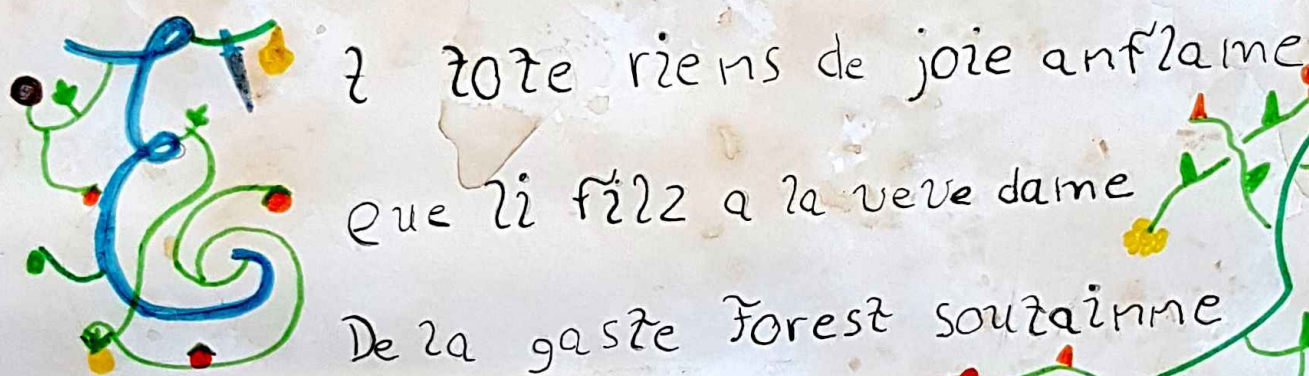 Et tote riens de joie anflame
que li filz a la veve dame
De la gaste Forest soutainne